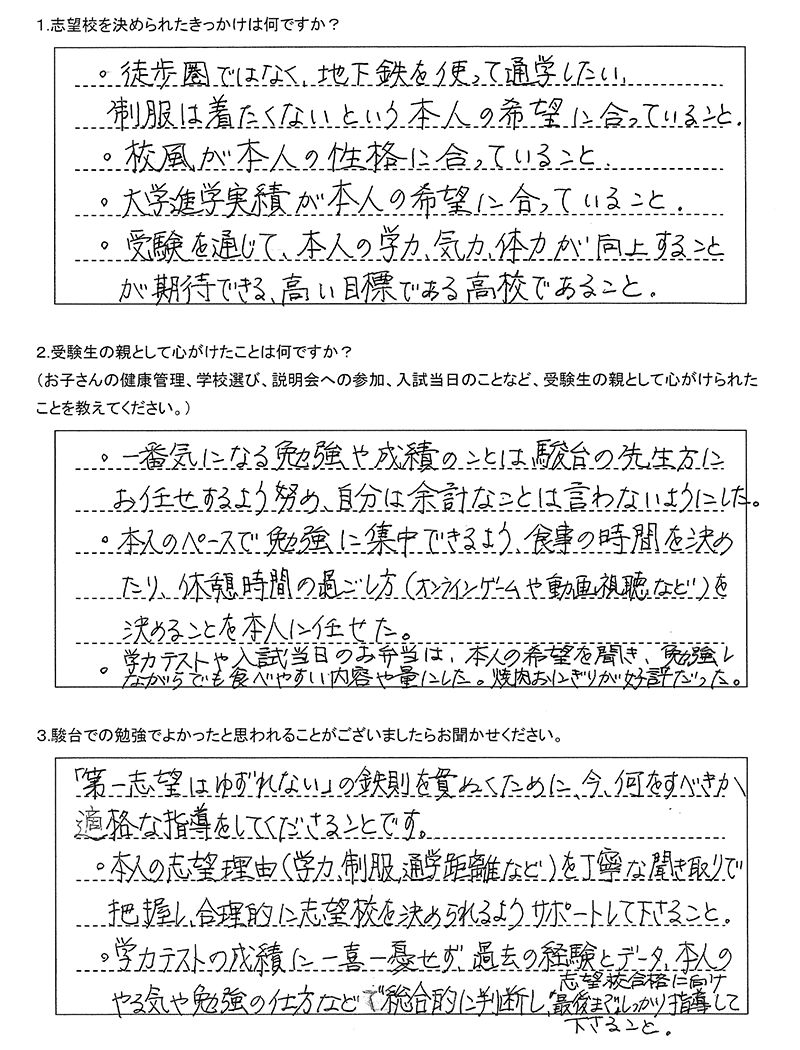 1.志望校を決められたきっかけは何ですか？
。徒歩圏ではなく、地下鉄を使って通学したい、
制服は着たくないという本人の希望に合っていること.
。校風が本人の性格に合っていること.
。大学進学実績が本人の希望に合っていること.
。受験を通じて、本人の学力、気力、体力が向上すること
が期待できる、高い目標である高校であること.
2.受験生の親として心がけたことは何ですか？
（お子さんの健康管理、学校選び、説明会への参加、入試当日のことなど、受験生の親として心がけられた
ことを教えてください。）
。一番気になる勉強や成績のことは駿台の先生方に
お任せするよう努め、自分は余計なことは言わないようにした。
。本人のペースで勉強に集中できるよう、食事の時間を決め
たり、休憩時間の過ごし方（オンラインゲームや動画視聴など）を
決めることを本人に任せた。
。学力テストや入試当日のお弁当は、本人の希望を聞き、勉強し
ながらでも食べやすい内容や量にした。焼肉おにぎりが好評だった。
3.駿台での勉強でよかったと思われることがございましたらお聞かせください。
「第一志望はゆずれない」の鉄則を貫ぬくために、今、何をすべきか
適格な指導をしてくださることです。
。本人の志望理由（学力、制服、通学距離など）を丁寧な聞き取りで
把握し、合理的に志望校を決められるようサポートして下さること。
。学力テストの成績に一喜一憂せず、過去の経験とデータ、本人の
やる気や勉強の仕方などで総合的に判断し、志望校合格に向け
最後までしっかり指導して
下さること.